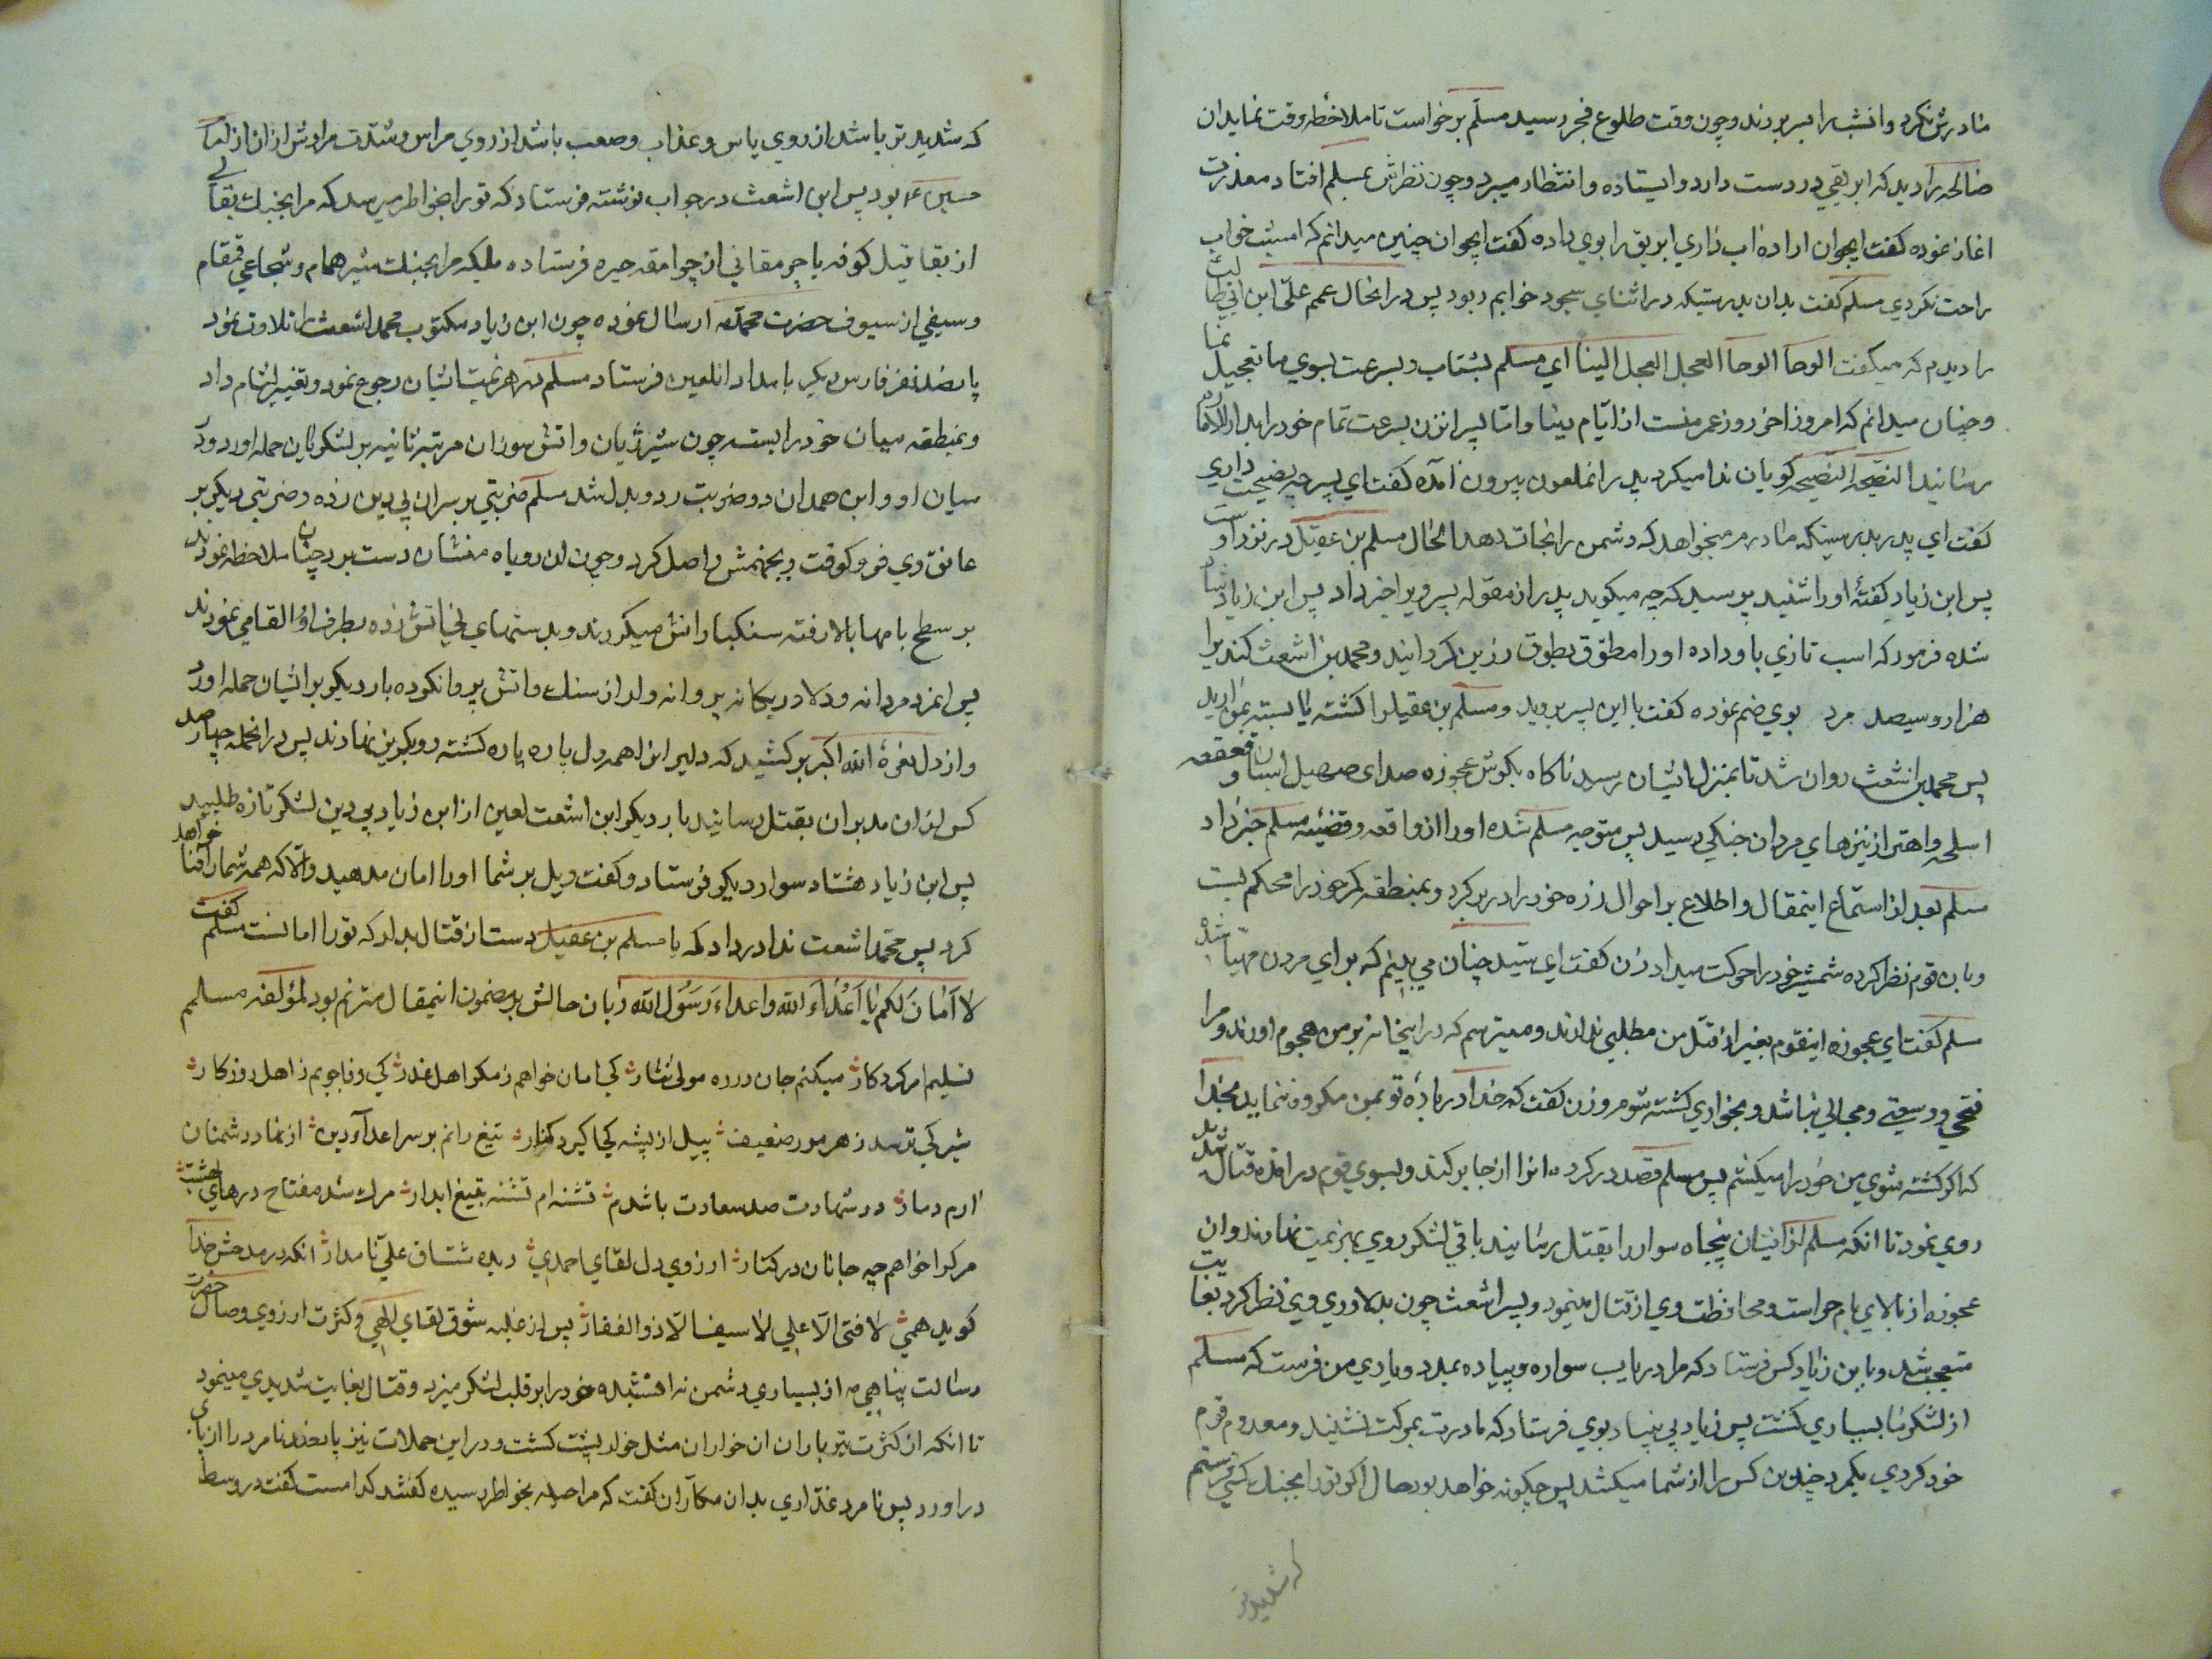 مادرش نکرد وانشب را بسر بردند وچون وقت طلوع فجر رسید مسلم برخواست تا ملاحظه وقت نماید ان
صالحه را دید که ابریقی در دست دارد وایستاده وانتظار میبرد وچون نظرش بمسلم افتاد معذرت
اغاز نموده کفت ایجوان اراده اب داری ابریق را بوی داده کفت ایجوان چنین میدانم که امشب خواب
راحت نکردی مسلم کفت بدان بدرستیکه در اثنای سجود خوابم ربود پس در انحال عمم علی ابن ابی طالب
را دیدم که میکفت الوحا الوحا العجل العجل الینا ای مسلم بشتاب وبسرعت بسوی ما تعجیل نما
وچنان میدانم که امروز اخر روز عمر منست از ایام دنیا واما پسر انزن بسرعت تمام خود را بدار الاماره
رسانید النصیحه النصیحه کویان ندا میکرد پدر انملعون بیرون امده کفت ای پسر چه نصیحت داری
کفت ای پدر بدرستیکه مادرم میخواهد که دشمن را نجات دهد الحال مسلم بن عقیل در نزد اوست
پس ابن زیاد کفتهٔ اورا شنید پرسید که چه میکوید پدر از مقوله پسر ویرا خبر داد پس ابن زیاد شاد
شده فرمود که اسب تازی باو داده اورا مطوّق بطوق زرین کردانیدند ومحمد بن اشعث کندی را
هزار وسیصد مرد بوی ضم نموده کفت با این پسر بروید ومسلم بن عقیل را کشته یا بسته بمن ارید
پس محمد بن اشعث روان شد تا بمنزل ایشان رسید ناکاه بکوش عجوزه صدای صهیل اسبان وقعقعه
اسلحه واهتزاز نیزهای مردان جنکی رسید پس متوجه مسلم شده اورا از واقعه وقضیّه مسلم خبر داد
مسلم بعد از استماع اینمقال واطلاع بر احوال زره خود را در بر کرد وبمنطقه کمر خود را محکم بست
وبان قوم نظر کرده شمشیر خود را حرکت میداد زن کفت ای سید چنان می بینم که برای مردن مهیا شدهٔ
مسلم کفت ای عجوزه اینقوم بغیر از قتل من مطلبی ندارند ومیترسم که در اینخانه بر من هجوم اورند ومرا
فتحی ووسعتی ومجالی نباشد وبخواری کشته شوم وزن کفت که خدا در بارهٔ تو بمن مکروه ننماید بخدا
که اکر کشته شوی من خود را میکشم پس مسلم قصد در کرده انرا از جا برکند وبسوی قوم در امده قتال شدید
روی نمود تا انکه مسلم از ایشان پنجاه سوار را بقتل رسانید باقی لشکر روی بهزیمت نهادند وان
عجوزه از بالای بام حراست ومحافظت وی از قتال مینمود وپسر اشعث چون بدلاوری وی نظر کرد بغایت
متعجب شد وبابن زیاد کس فرستاد که مرا دریاب سواره وپیاده بمدد ویاری من فرست که مسلم
از لشکر ما بسیاری کشت پس زیاد بی بنیاد بوی فرستاد که مادرت بمرکت نشیند ومعدوم قوم
خود کردی یکمرد چندین کس را از شما میکشد پس چکونه خواهد بود حال اکر تورا بجنک کسی فرستم
که شدید تر
که شدید تر باشد از روی باس وعذاب وصعب باشد از روی مراس وشدّت مرادش از ان
حسین ع بود پس ابن اشعث در جواب نوشته فرستاد که تورا بخاطر میرسد که مرا بجنک بقالی
از بقاقیل کوفه یا جرمقانی از جرامقه حیره فرستاده بلکه مرا بجنک شیر همام وشجاعی قمقام
وسیفی از سیوف حضرت محمد ص ارسال نموده چون ابن زیاد مکتوب محمد اشعث را تلاوت نمود
پانصد نفر فارس دیکر بامداد انلعین فرستاد مسلم که هزیمت ایشان رجوع نمود وتغییر لثام داد
وبمنطقه میان خود را بسته چون شیر ژیان واتش سوزان مرتبه ثانیه بر لشکر کاین حمله اورد ودر
میان او وابن همدان دو ضربت رد وبدل شد مسلم ضربتی بر سر ان بی دین زده وضربتی دیکر بر
عاتق وی فرو کوفت وبجهنمش واصل کرد وچون ان روباه منشان دست برد چنان ملاحظه نمودند
بر سطح بامها بالا رفته سنکباران میکردند وبدستهای نی اتش زده بطرف او القا می نمودند
پس انمرد مردانه ودلاور یکانه پروانه وار از سنک واتش پروا نکرده بار دیکر بر ایشان حمله اورد
واز دل نعرهٔ الله اکبر برکشید که دلیرانرا همه دل پاره پاره کشته رو بکریز نهادند پس در انحمله چهار صد
کس از ان مدبران بقتل رسانید بار دیکر ابن اشعث لعین از ابن زیاد بی دین لشکر تازه طلبید
پس ابن زیاد هشتاد سوار دیکر فرستاد وکفت ویل بر شما اورا امان بدهید والا که همه شما را فنا خواهد
کرد پس محمد اشعث ندا در داد که یا مسلم بن عقیل دست از قتال بدار که تورا امانست مسلم کفت
لا اَمانَ لکم یا اَعْداءَ الله واعداءَ رَسُول الله زبان حالش بمضمون اینمقال مترنم بود لمؤلفه مسلم
تسلیم امر کردکار میکنم جان در ره مولی نثار کی امان خواهم ز مکر اهل غدر کی وفا جویم ز اهل روزکار
شیر کی ترسد ز هر مور ضعیف پیل از پشه کجا کیرد کنار تیغ رانم بر سر اعدای دین از نهاد دشمنان
ارم دمار در شهادت صد سعادت باشدم تشنه ام تشنه بتیغ ابدار مرک شد مفتاح درهای بهشت
مرک را خواهم چه جانان در کنار ارزوی دل لقای احمدی دیده مشتاق علی نامدار انکه در مدحش خدا
کوید همی لا فتی الّا علی لا سیف الّا ذو الفقار پس از غلبه شوق لقای الهی وکثرت ارزوی وصال حضرت
رسالت پناهی ص از بسیاری دشمن نه اندیشیده خود را بر قلب لشکر میزد وقتال بغایت شدیدی مینمود
تا انکه از کثرت تیر باران ان خواران مثل خار پشت کشت ودر این حملات نیز پانصد نامرد را از پای
در اورد پس نامرد غدّاری بدان مکّاران کفت که مرا حیله بخاطر رسیده کفتند کدامست کفت در وسط